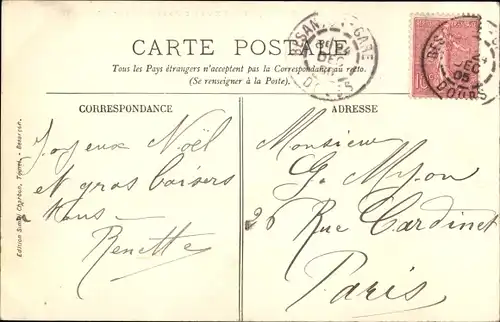 CARTE POSTALE
Tous les Pays étrangers n'acceptent pas la Correspondance au recto.
(Se renseigner à la Poste.)
CORRESPONDANCE
Joyeux Noël
et gros baisers
à tous
Renette
ADRESSE
Monsieur
G. Myon
26 Rue Cardinet
Paris
BESANÇON-GARE
DEC
DOUBS
BES
DEC
05
DOUBS
10